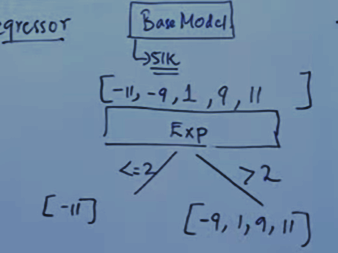 gressor
Base Model
51K
[-11, -9, 1, 9, 11 ]
Exp
<=2 >2
[-11] [-9, 1, 9, 11]